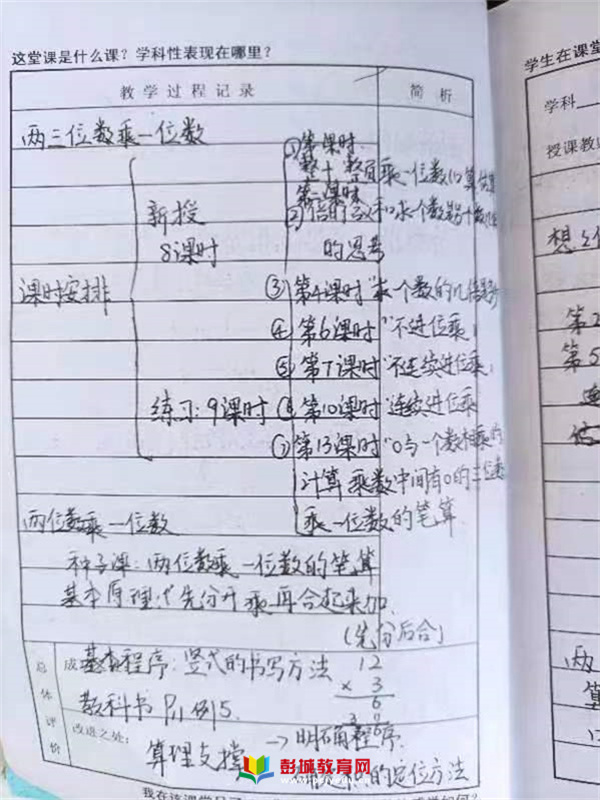 这堂课是什么课？学科性表现在哪里？
教学过程记录
简析
两三位数乘一位数
①第一课时
整十、整百乘一位数的
新授
8课时
的思考
课时安排
③第4课时"求一个数的几倍
④第6课时"不进位乘"
⑤第7课时"不连续进位乘"
练习：9课时
第10课时"连续进位乘
第13课时"0与一个数相乘的
计算 乘数中间有0的三位数
乘一位数的笔算
两位数乘一位数
种子课：两位数乘一位数的笔算
基本原理：先分开乘再合起来加
（先分后合）
总体评价
成
基本程序：竖式的书写方法
12
× 3
6
3
36
教科书 例5.
改进之处：
算理支撑 → 明确程序
的定位方法
彭城教育网
学生在课堂
学科
授课教
想
第2
第5
两